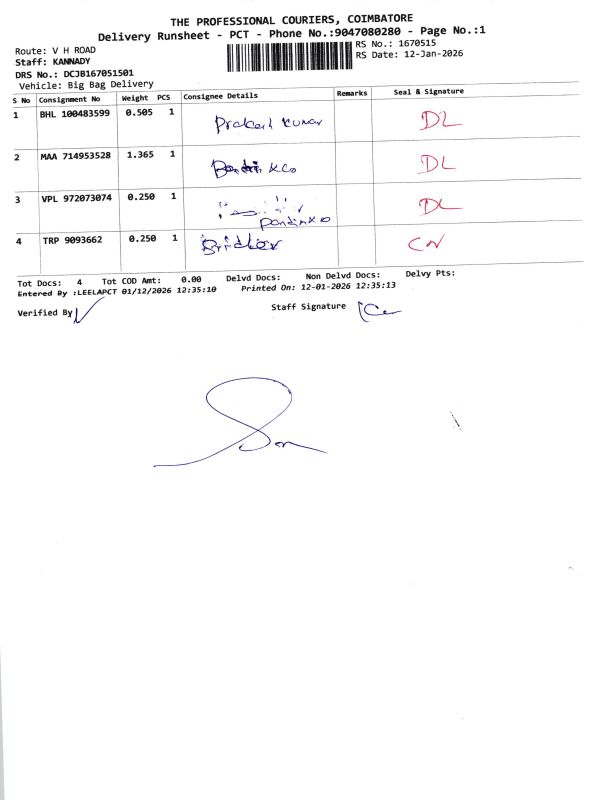 THE PROFESSIONAL COURIERS, COIMBATORE
Delivery Runsheet - PCT - Phone No.:9047080280 - Page No.:1
Route: V H ROAD
RS No.: 1670515
Staff: KANNADY
RS Date: 12-Jan-2026
DRS No.: DCJB167051501
Vehicle: Big Bag Delivery
S No Consignment No Weight PCS Consignee Details Remarks Seal & Signature
1 BHL 100483599 0.505 1 Prakash Kumar DL
2 MAA 714953528 1.365 1 DL
3 VPL 972073074 0.250 1 DL
4 TRP 9093662 0.250 1
Tot Docs: 4 Tot COD Amt: 0.00 Delvd Docs: Non Delvd Docs: Delvy Pts:
Entered By :LEELAPCT 01/12/2026 12:35:10 Printed On: 12-01-2026 12:35:13
Verified By
Staff Signature